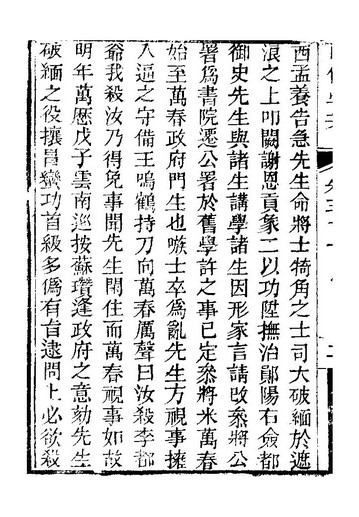 酉孟養告急先生命將士犄角之土司大破緬於遮
浪之上叩闕謝恩貢象二以功陞撫治鄖陽右僉都
御史先生與諸生講學諸生因形家言請改叅將公
署爲書院遷公署於舊學許之事已定叅將米萬春
始至萬春政府門生也嗾士卒爲亂先生方視事擁
入逼之守備王鳴鶴持刀向萬春厲聲曰汝殺李都
爺我殺汝乃得免事聞先生閒住而萬春視事如故
明年萬歷戊子雲南巡按蘇瓚逢政府之意劾先生
破緬之役攘冒蠻功首級多僞有旨逮問上必欲殺